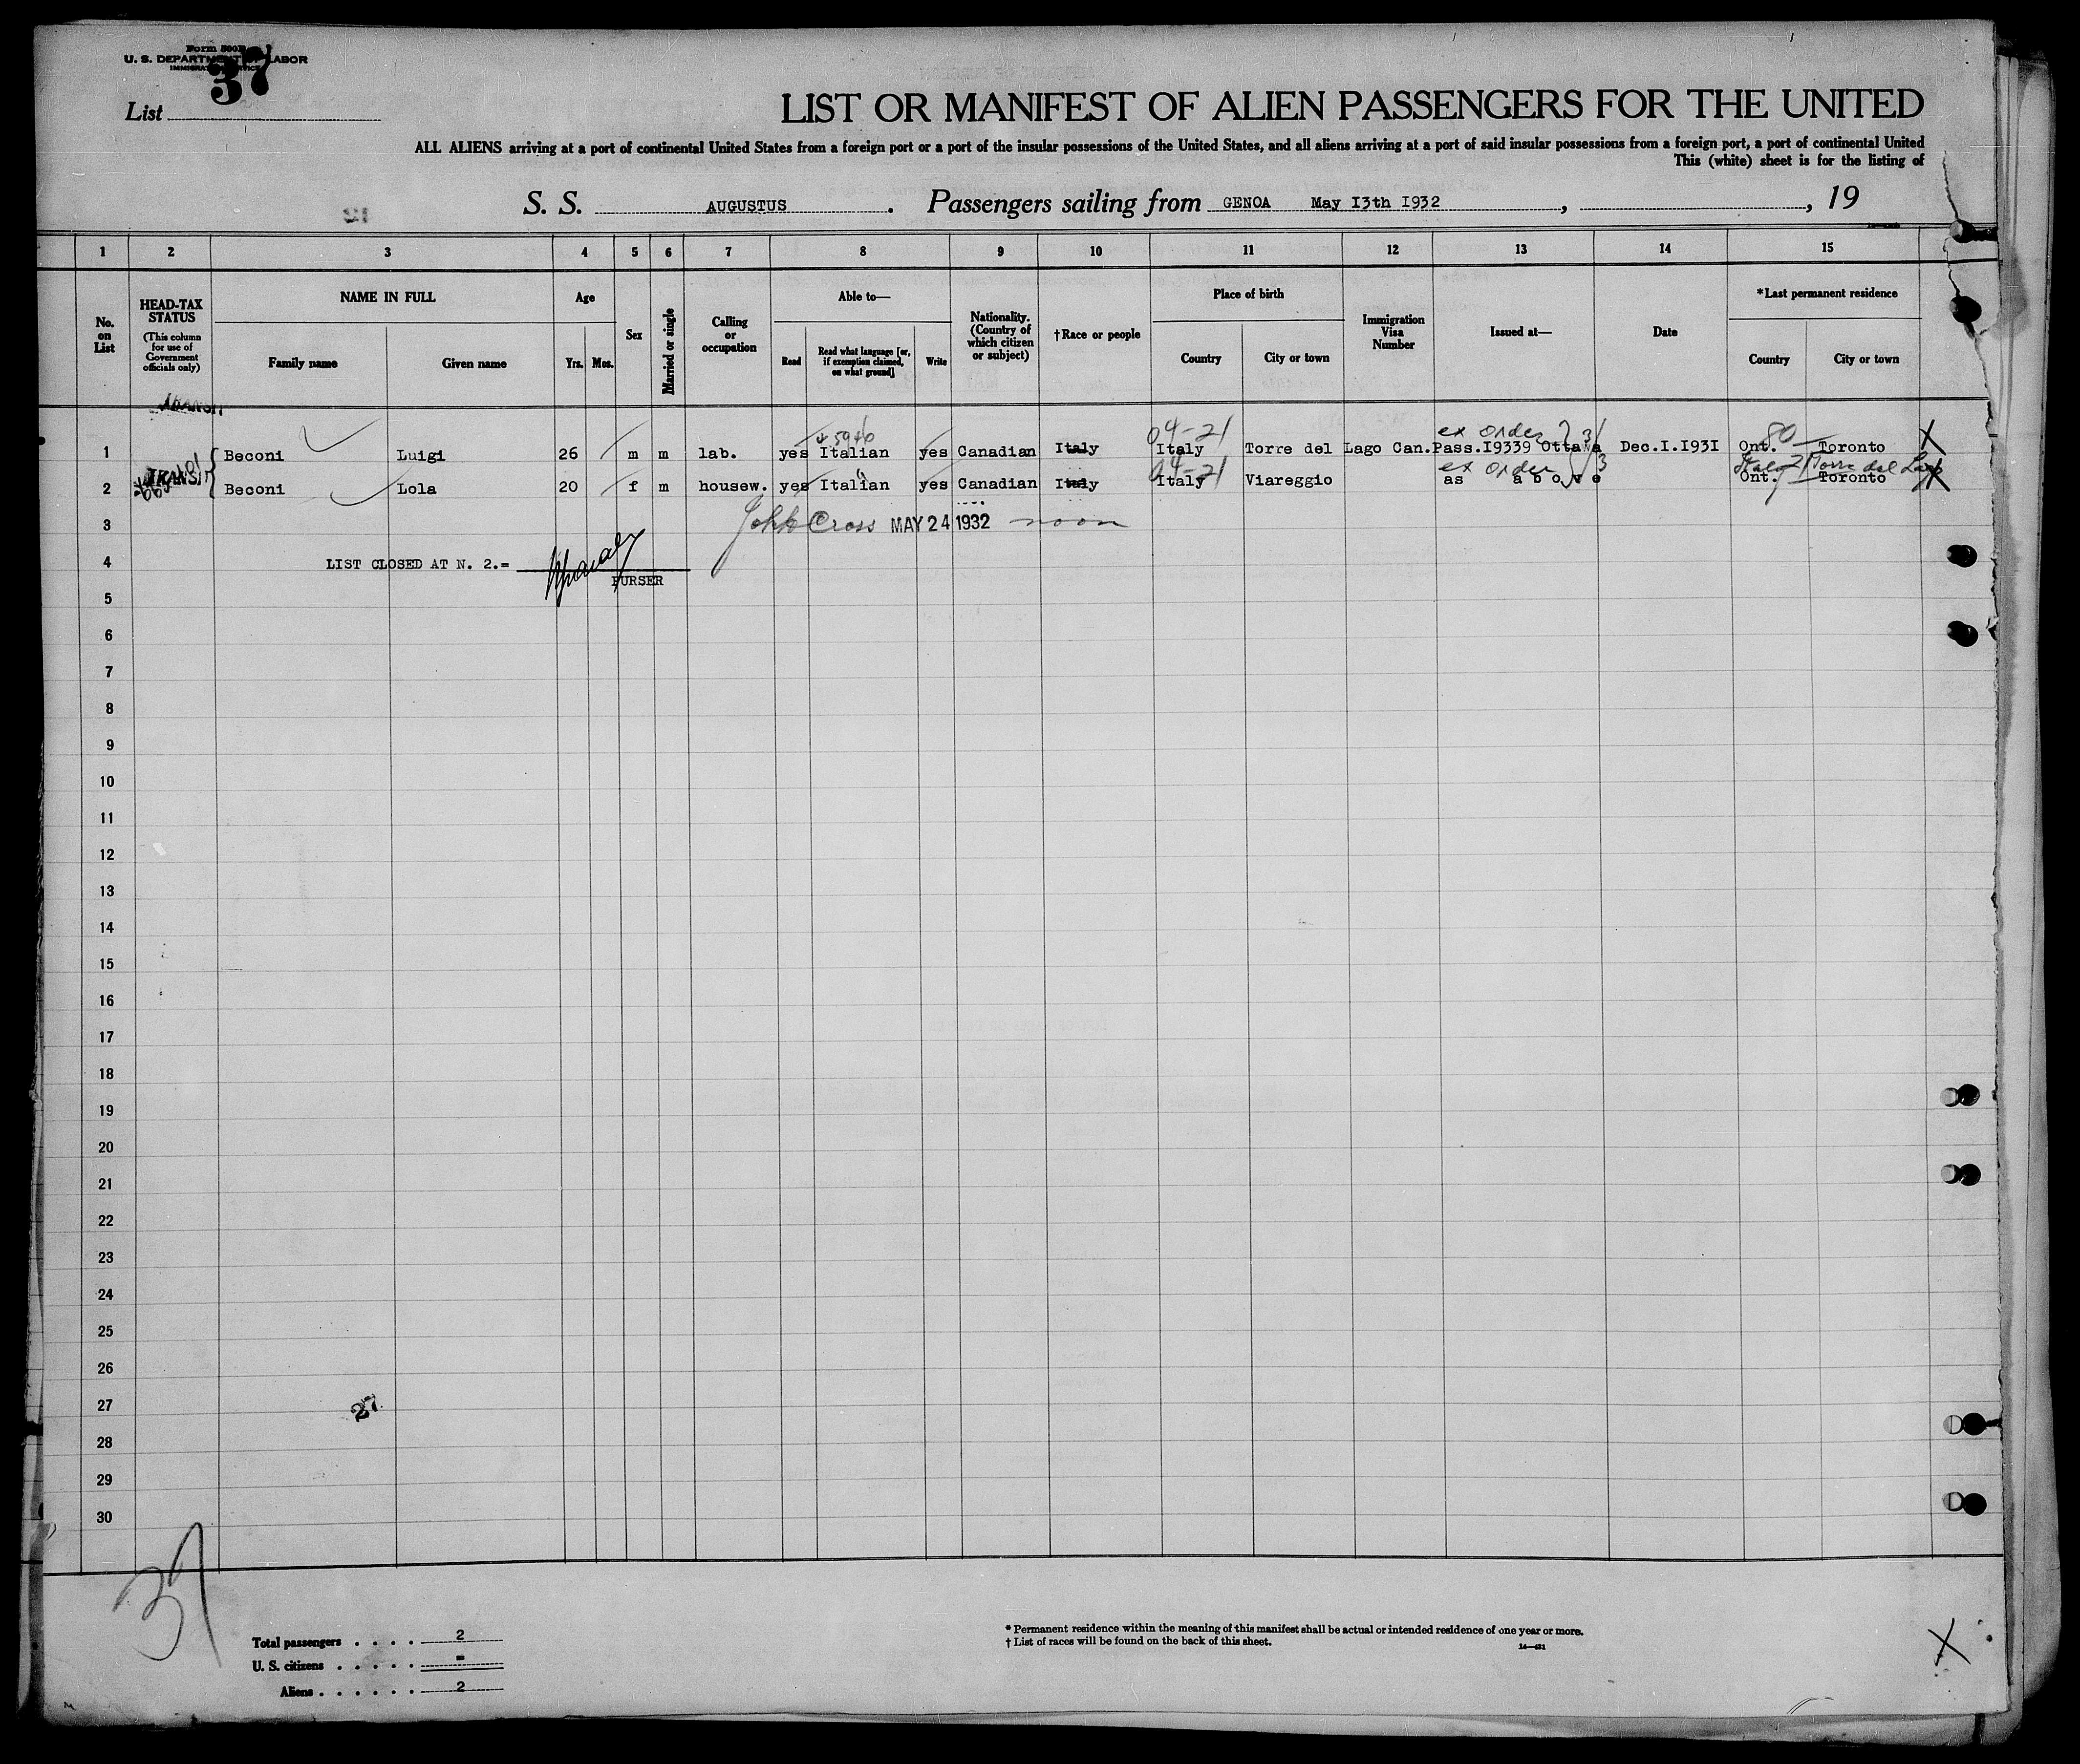 U. S. DEPARTMENT OF LABOR
37
List
LIST OR MANIFEST OF ALIEN PASSENGERS FOR THE UNITED
ALL ALIENS arriving at a port of continental United States from a foreign port or a port of the insular possessions of the United States, and all aliens arriving at a port of said insular possessions from a foreign port, a port of continental United
This (white) sheet is for the listing of
S. S. AUGUSTUS . Passengers sailing from GENOA May I3th I932 , , 19
1 2 3 4 5 6 7 8 9 10 11 12 13 14 15
No. on List
HEAD-TAX STATUS
(This column for use of Government officials only)
NAME IN FULL
Family name Given name
Age
Yrs. Mos.
Sex
Married or single
Calling or occupation
Able to—
Read Read what language [or, if exemption claimed, on what ground] Write
Nationality. (Country of which citizen or subject)
†Race or people
Place of birth
Country City or town
Immigration Visa Number
Issued at—
Date
*Last permanent residence
Country City or town
TRANSIT
04-21 ex order 80
1 Beconi Luigi 26 m m lab. yes Italian yes Canadian Italy Italy Torre del Lago Can.Pass.I9339 Ottawa Dec.I.I93I Ont. Toronto X
TRANSIT 04-21 ex order 3 Italy 21 Torre del Lago
2 Beconi Lola 20 f m housew. yes Italian yes Canadian Italy Italy Viareggio as above Ont. Toronto X
3 John Cross MAY 24 1932 noon
4 LIST CLOSED AT N. 2.=
PURSER
5
6
7
8
9
10
11
12
13
14
15
16
17
18
19
20
21
22
23
24
25
26
27
27
28
29
30
37
Total passengers . . . . 2
U. S. citizens . . . . . =
Aliens . . . . . . 2
* Permanent residence within the meaning of this manifest shall be actual or intended residence of one year or more.
† List of races will be found on the back of this sheet.
X